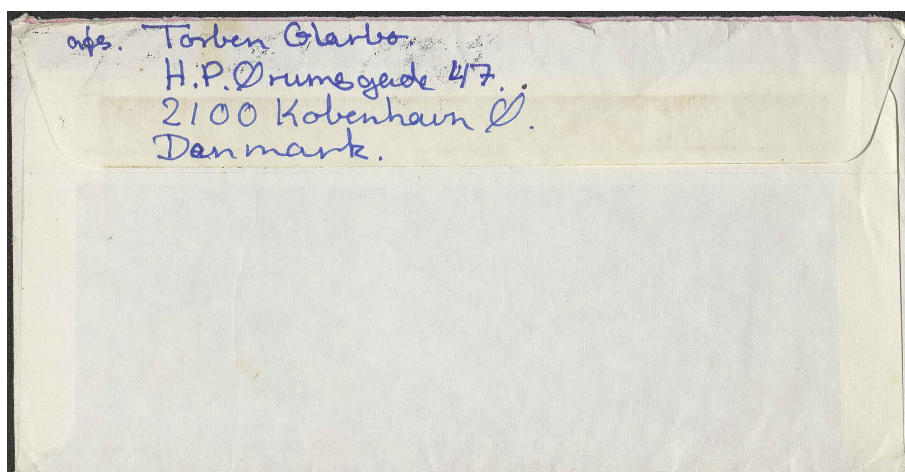 afs. Torben Glarbo.
H.P. Ørumsgade 47.
2100 Kobenhavn Ø.
Danmark.